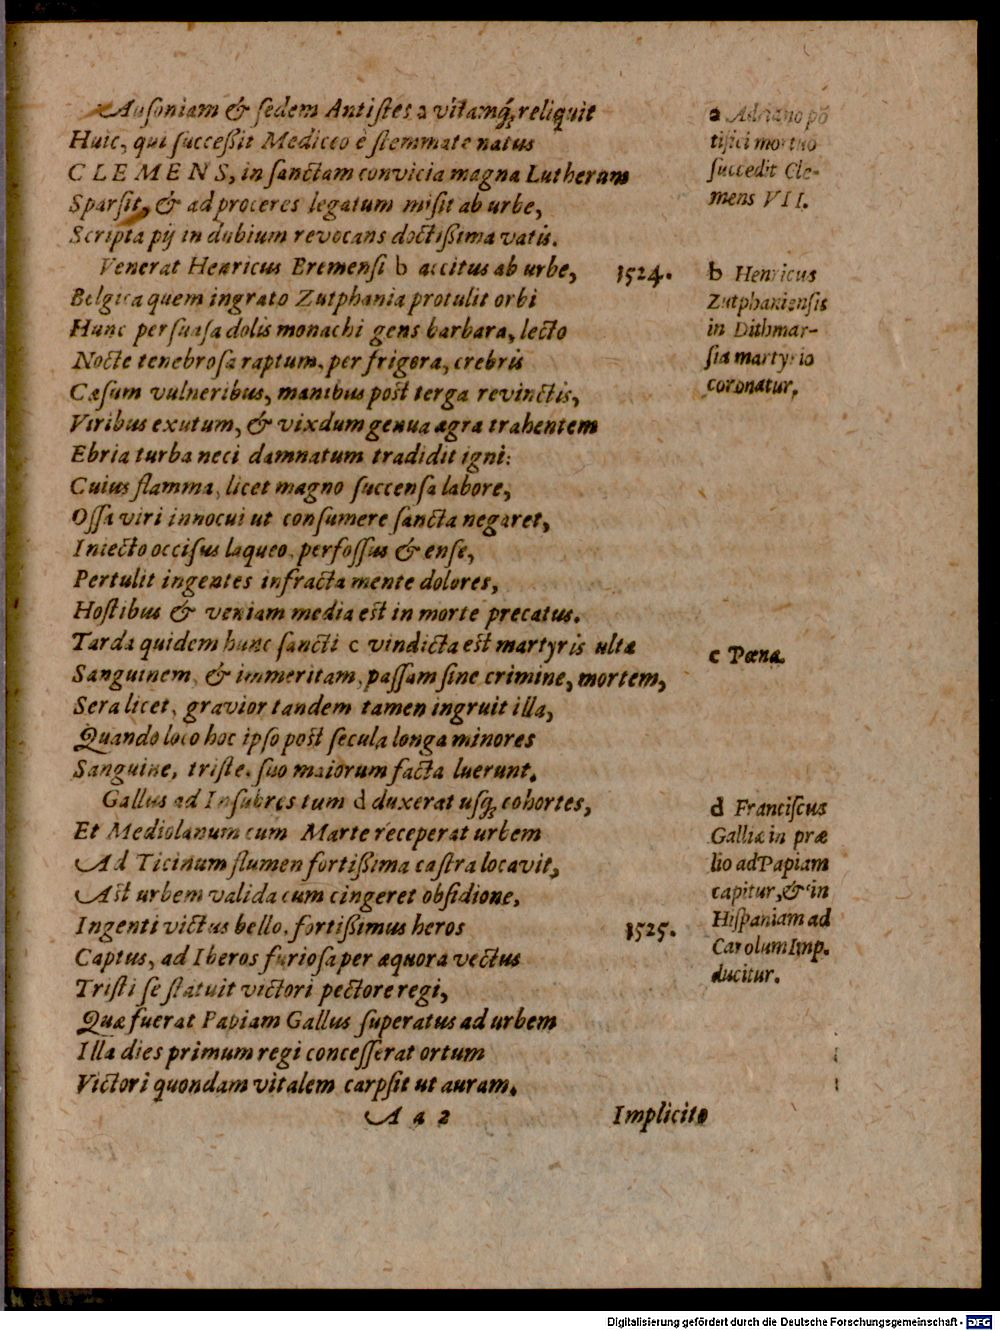 Auſoniam & ſedem Antiſtes a vitamq́; reliquit
Huic, qui ſucceßit Mediceo è ſtemmate natus
CLEMENS, in ſanctam convicia magna Lutherum
Sparſit, & ad proceres legatum miſit ab urbe,
Scripta pij in dubium revocans doctißima vatis.
Venerat Henricus Bremenſi b accitus ab urbe,
Belgica quem ingrato Zutphania protulit orbi
Hunc perſuaſa dolis monachi gens barbara, lecto
Nocte tenebroſa raptum, per frigora, crebris
Cæſum vulneribus, manibus poſt terga revinctis,
Viribus exutum, & vixdum genua ægra trahentem
Ebria turba neci damnatum tradidit igni:
Cuius flamma, licet magno ſuccenſa labore,
Oſſa viri innocui ut conſumere ſancta negaret,
Iniecto occiſus laqueo, perfoſſus & enſe,
Pertulit ingentes infracta mente dolores,
Hoſtibus & veniam media eſt in morte precatus.
Tarda quidem hunc ſancti c vindicta eſt martyris ulta
Sanguinem, & immeritam, paſſam ſine crimine, mortem,
Sera licet, gravior tandem tamen ingruit illa,
Quando loco hoc ipſo poſt ſecula longa minores
Sanguine, triſte, ſuo maiorum facta luerunt.
Gallus ad Inſubres tum d duxerat uſq; cohortes,
Et Mediolanum cum Marte receperat urbem
Ad Ticinum flumen fortißima caſtra locavit,
Aſt urbem valida cum cingeret obſidione,
Ingenti victus bello, fortißimus heros
Captus, ad Iberos furioſa per æquora vectus
Triſti ſe ſtatuit victori pectore regi,
Quæ fuerat Papiam Gallus ſuperatus ad urbem
Illa dies primum regi conceſſerat ortum
Victori quondam vitalem carpſit ut auram.
A a 2
Implicito
a Adriano pō
tifici mortuo
ſuccedit Cle-
mens VII.
1524.
b Henricus
Zutphanienſis
in Dithmar-
ſia martyrio
coronatur.
c Pœna.
1525.
d Franciſcus
Galliæ in præ
lio ad Papiam
capitur, & in
Hiſpaniam ad
Carolum Imp.
ducitur.
Digitalisierung gefördert durch die Deutsche Forschungsgemeinschaft - DFG